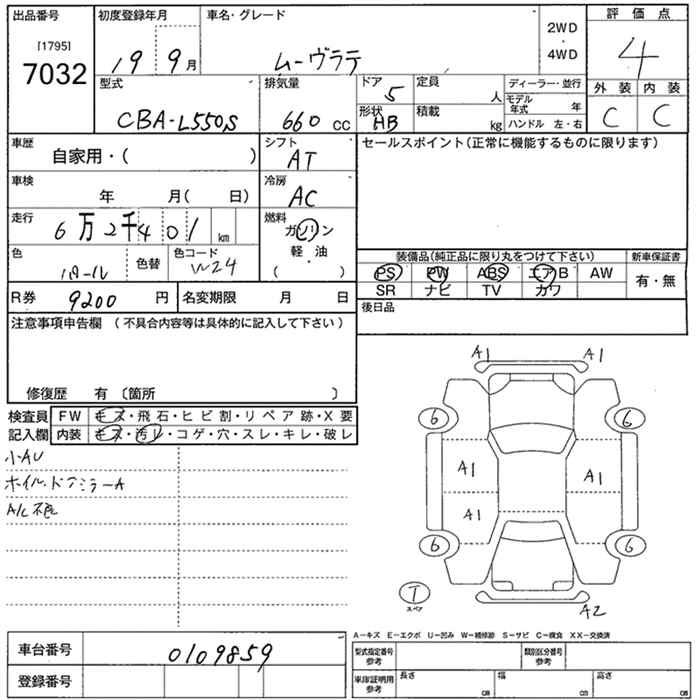 出品番号
[1795]
7032
初度登録年月
19 9月
車名・グレード
ムーヴラテ
2WD
・
4WD
評価点
4
型式
CBA-L550S
排気量
660 CC
ドア
5
形状
HB
定員
人
積載
kg
ディーラー・並行
モデル年式 年
ハンドル 左・右
外装 内装
C C
車歴
自家用・( )
シフト
AT
セールスポイント(正常に機能するものに限ります)
車検
年 月( 日)
冷房
AC
走行
6万2千401 km
燃料
ガソリン
・
軽・油
( )
色
パール
色替
色コード
W24
装備品(純正品に限り丸をつけて下さい)
PS PW ABS エアB AW
SR ナビ TV カワ
新車保証書
有・無
R券 9200 円
名変期限 月 日
後日品
注意事項申告欄 (不具合内容等は具体的に記入して下さい)
修復歴 有 〔箇所 〕
検査員
記入欄
FW キズ・飛石・ヒビ割・リペア跡・X要
内装 キズ・汚レ・コゲ・穴・スレ・キレ・破レ
小AU
ホイル・ドアミラーA
A/C不良
A1 A1
6 6
A1 A1
A1
6 6
T
スペア
A2
A−キズ E−エクボ U−凹み W−補修跡 S−サビ C−腐食 XX−交換済
車台番号 0109859
登録番号
型式指定番号
参考
類別区分番号
参考
車庫証明用
参考
長さ cm
幅 cm
高さ cm